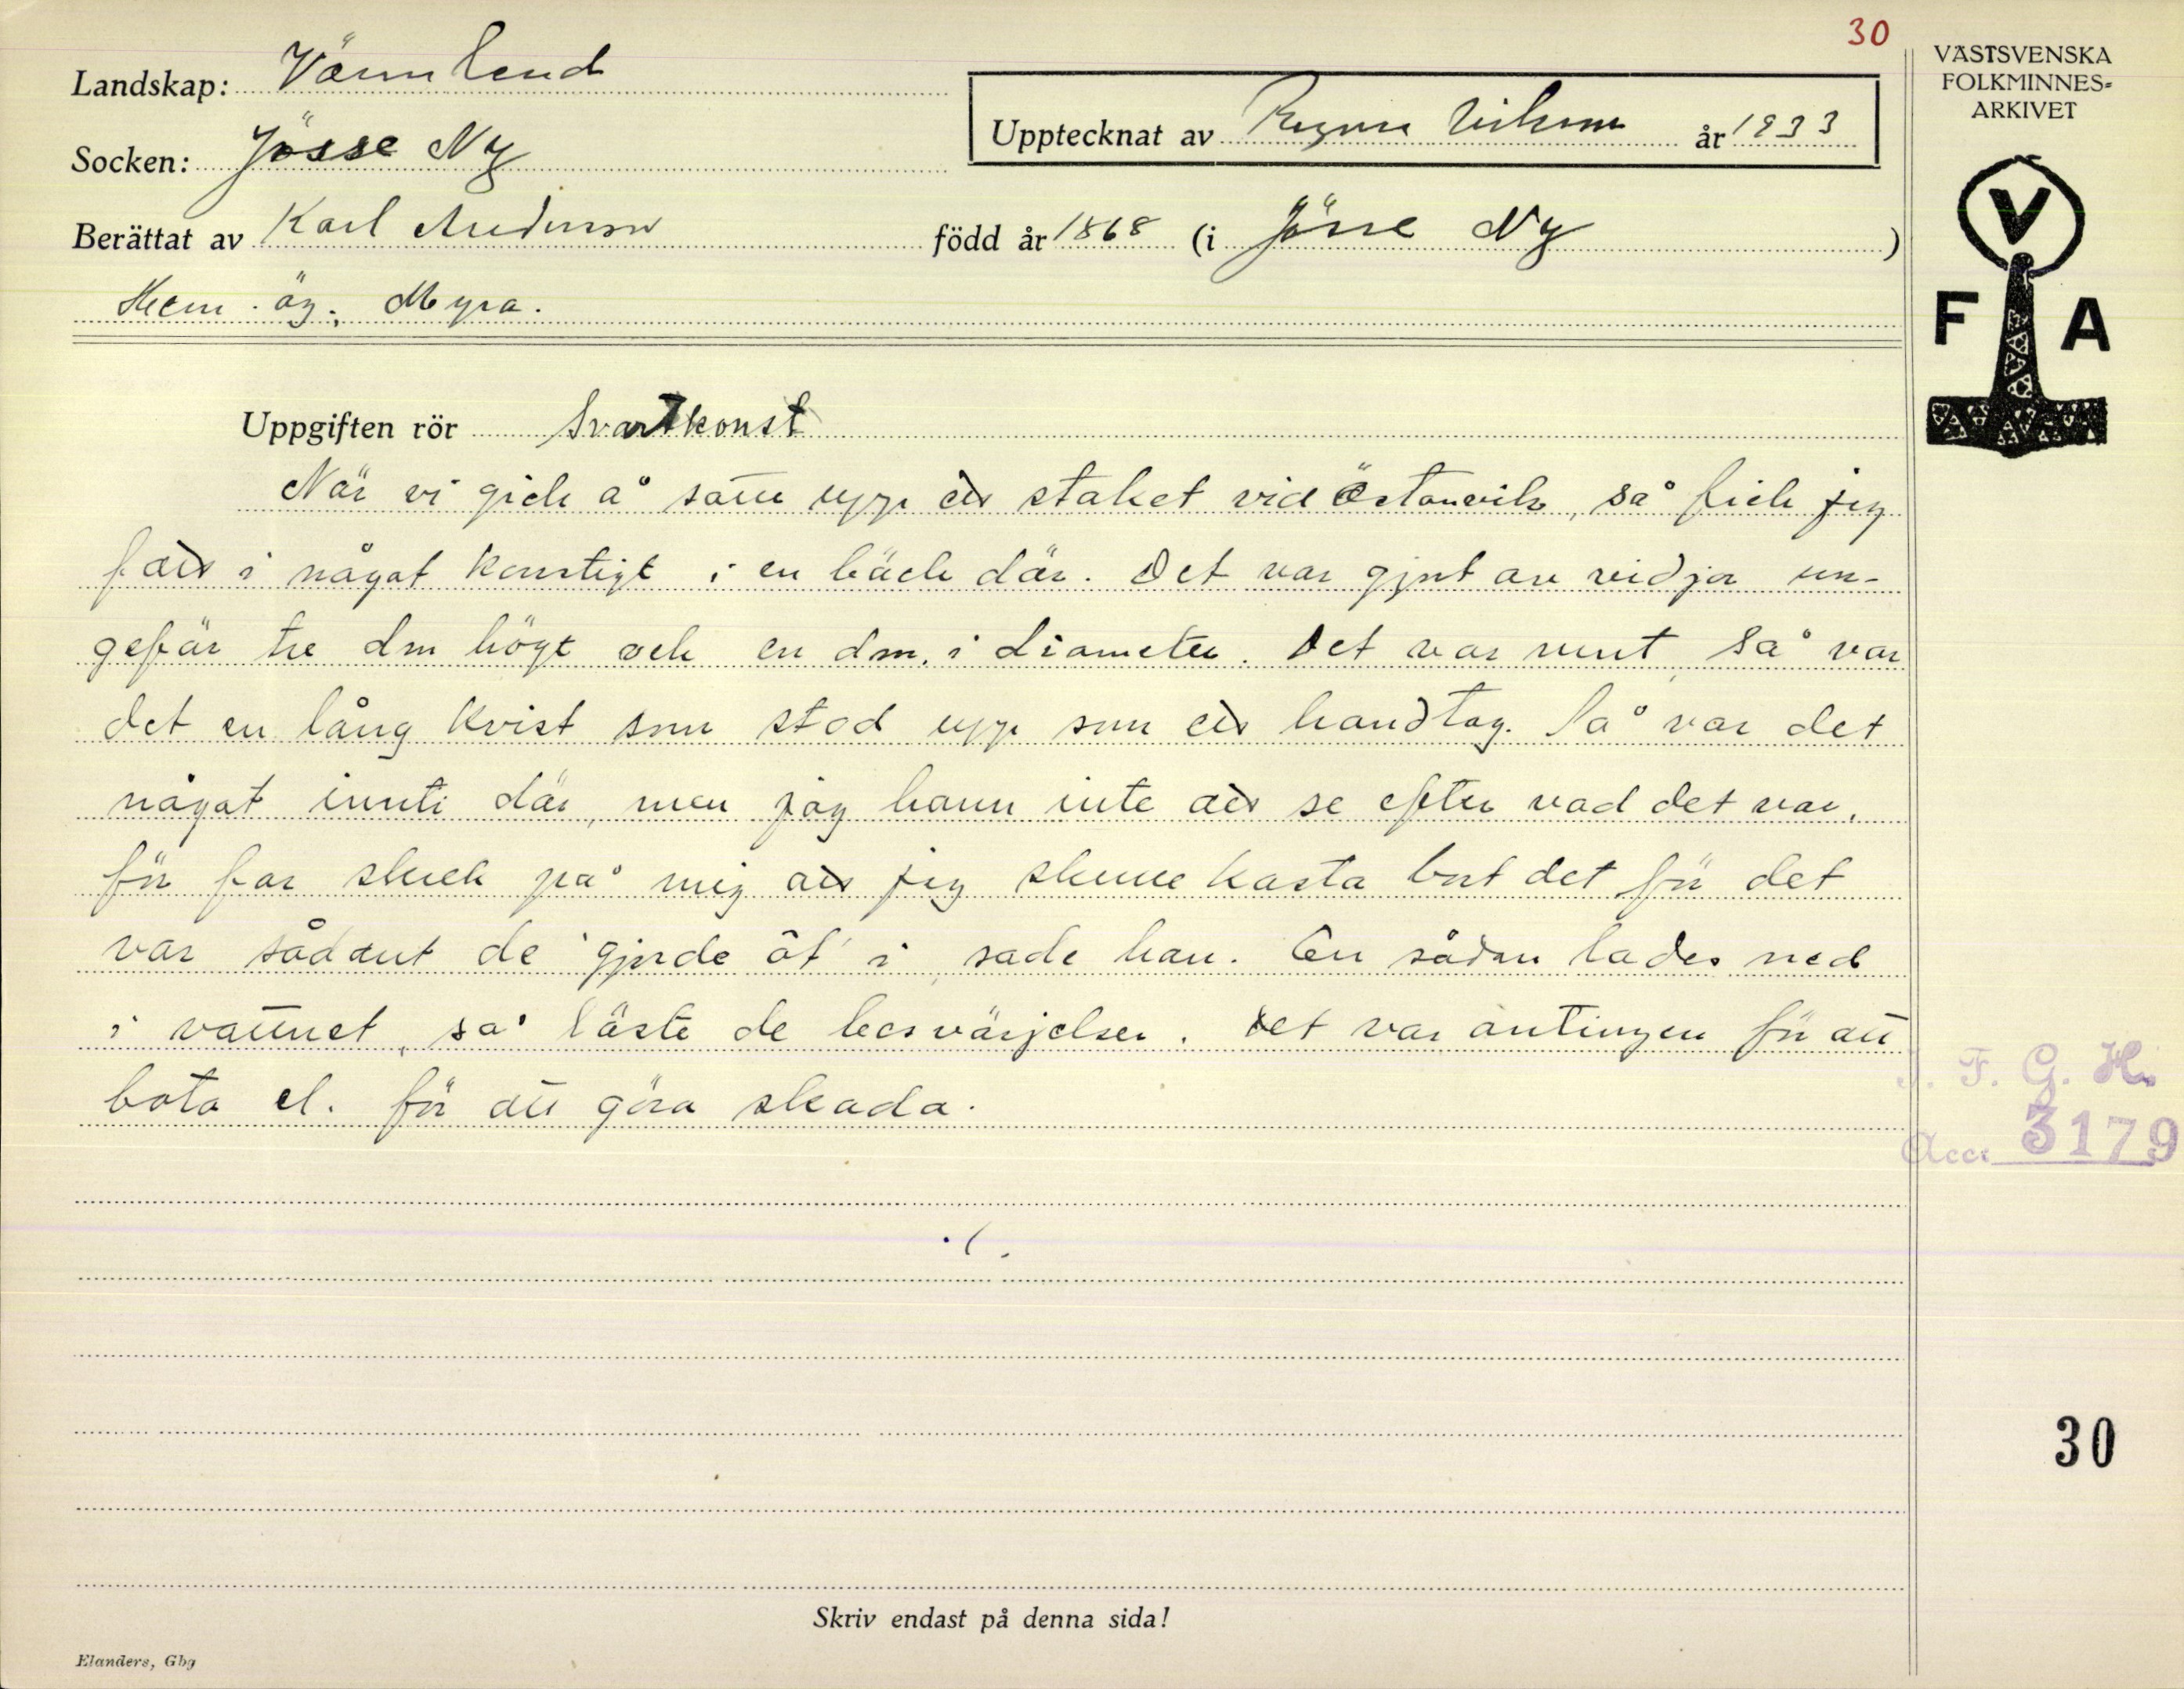 30
VÄSTSVENSKA
FOLKMINNES-
ARKIVET
Landskap: Värmland
Upptecknat av Ragnar Nilsson år 1933
Socken: Jösse Ny
Berättat av Karl Andersson född år 1868 (i Jösse Ny)
Hem. äg., Myra.
V
F A
Uppgiften rör Svartkonst
När vi gick å satte upp ett staket vid Östanvik, så fick jag
fatt i något konstigt i en bäck där. Det var gjort av vidjor un-
gefär tre dm högt och en dm. i diameter. Det var runt, så var
det en lång kvist som stod upp som ett handtag. Så var det
något innti där, men jag hann inte att se efter vad det var,
för far skrek på mig att jag skulle kasta bort det för det
var sådant de gjorde åt i, sade han. En sådan lades ned
i vattnet, så läste de besvärjelser. Det var antingen för att
bota el. för att göra skada.
F. G. H.
Acc. 3179
30
Skriv endast på denna sida!
Elanders, Gbg